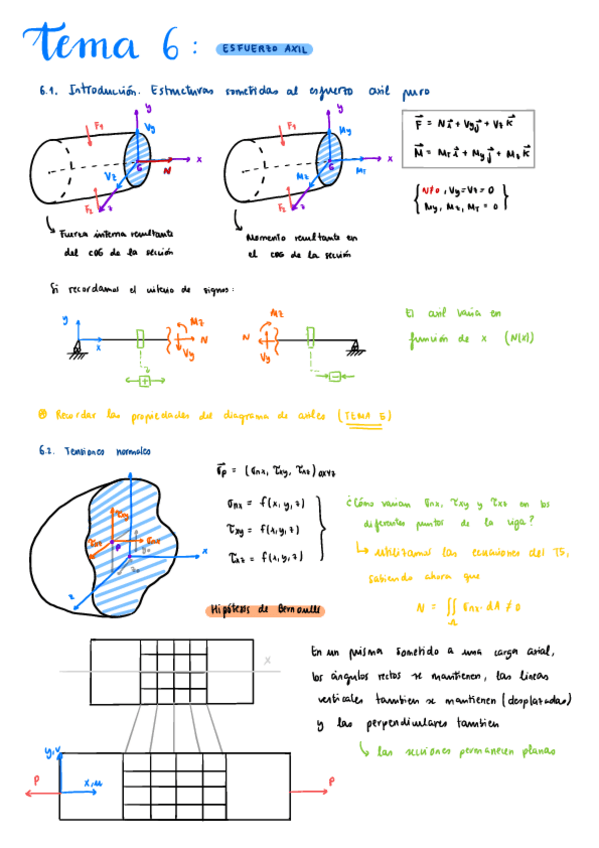 Tema 6: ESFUERZO AXIL
6.1. Introducción. Estructuras sometidas al esfuerzo axil puro
y
y
F₁
Vy
F₁
My
x
x
G
N
G
Mt
Vz
Mz
F₂
z
F₂
z
F⃗ = N i⃗ + Vy j⃗ + Vz k⃗
M⃗ = MT i⃗ + My j⃗ + Mz k⃗
N≠0, Vy=Vz=0
My, Mz, MT = 0
Fuerza interna resultante
del CDG de la sección
Momento resultante en
el CDG de la sección
Si recordamos el criterio de signos:
y
x
Mz
N
Vy
+
Mz
N
Vy
-
El axil varia en
función de x (N(x))
Recordar las propiedades del diagrama de axiles (TEMA 5)
6.2. Tensiones normales
τxy
τxz
σnx
P
x
z
σ⃗p = (σnx, τxy, τxz)oxyz
σnx = f(x,y,z)
τxy = f(x,y,z)
τxz = f(x,y,z)
¿Cómo varian σnx, τxy y τxz en los
diferentes puntos de la viga?
utilizamos las ecuaciones del T5,
sabiendo ahora que
N = ∬ σnx · dA ≠ 0
Hipótesis de Bernoulli
x
y,v
x,u
P
P
En un prisma sometido a una carga axial,
los ángulos rectos se mantienen, las lineas
verticales tambien se mantienen (desplazadas)
y las perpendiculares tambien
las secciones permanecen planas